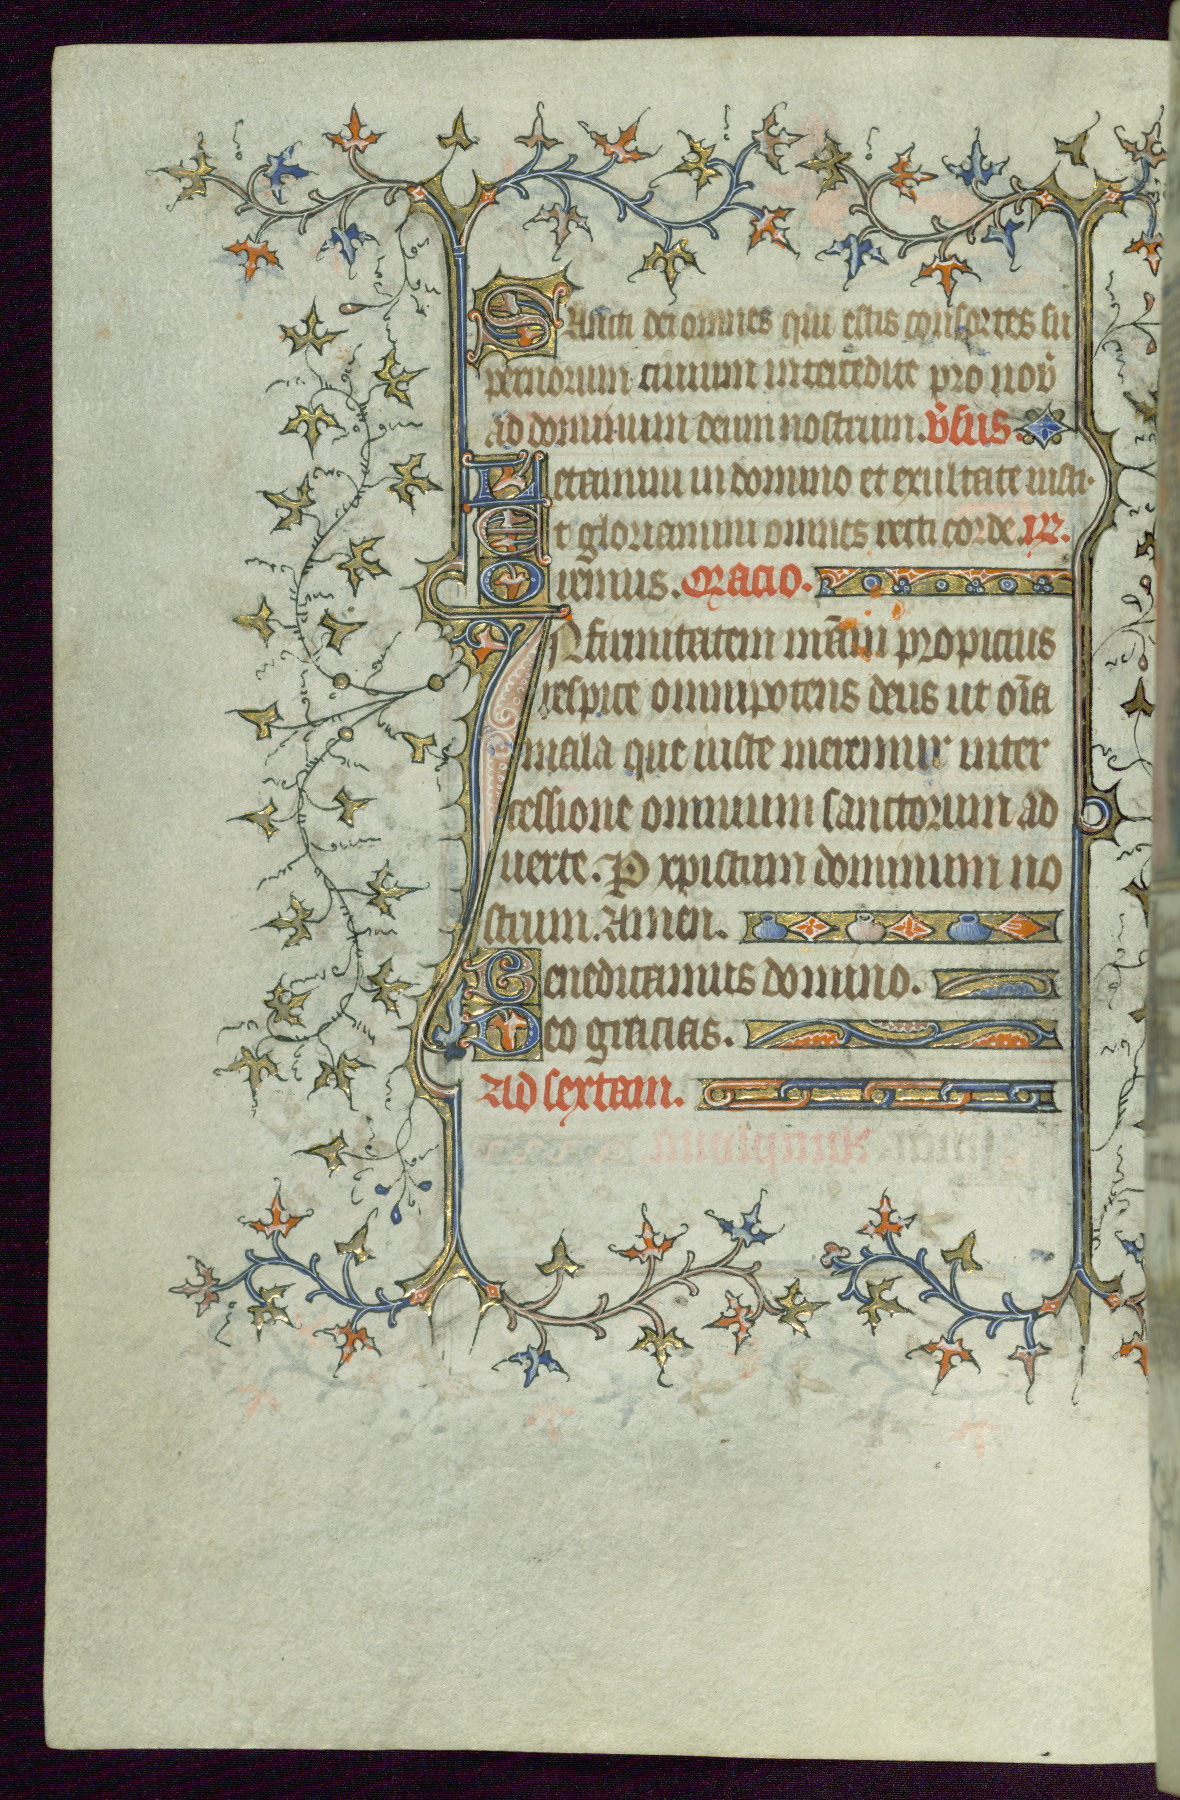 Sancti dei omnes qui estis consortes su
pernorum civium intercedite pro nob̄
ad dominum deum nostrum. v̄sus.
Letamini in domino et exultate iusti.
Et gloriamini omnes recti corde. R.
Oremus. Oracio.
Infirmitatem nr̄am propicius
respice omnipotens deus ut oīa
mala que iuste meremur inter
cessione omnium sanctorum ad
uerte. P xpistum dominum no
strum. Amen.
Benedicamus domino.
Deo gracias.
Ad sextam.